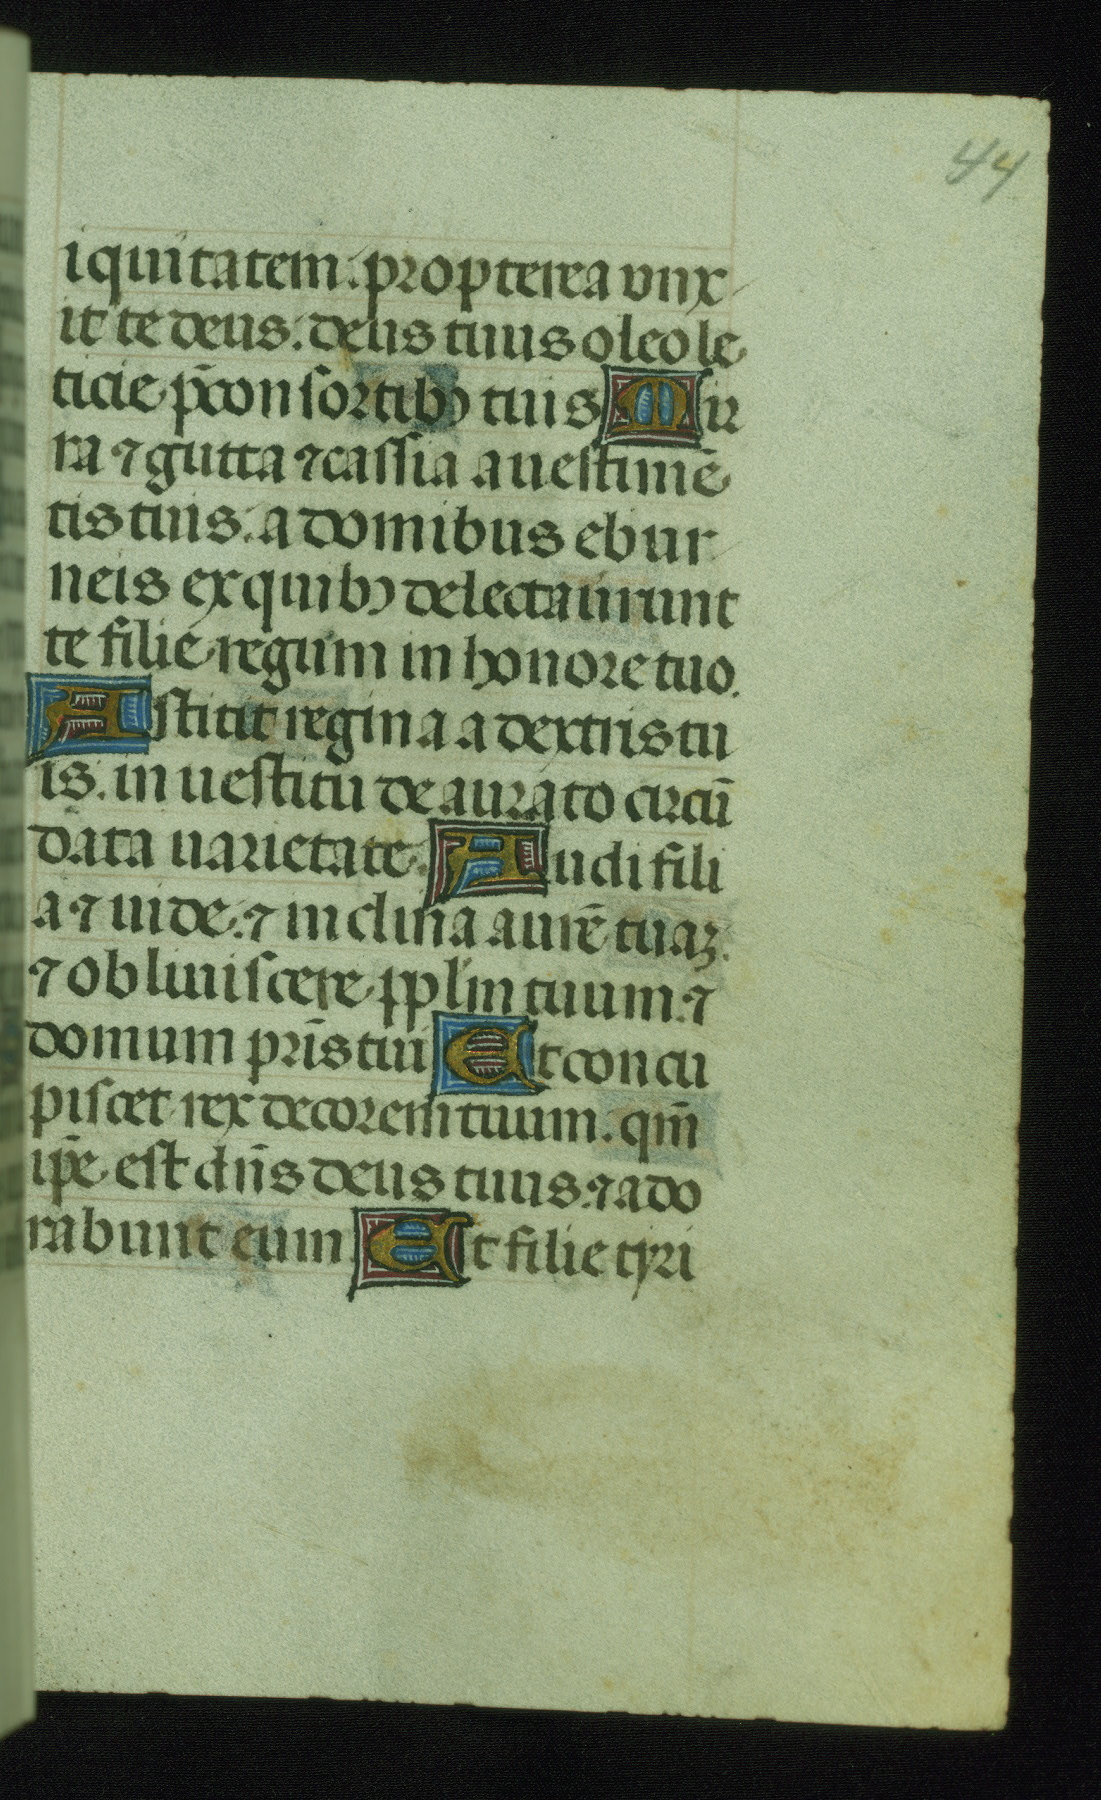 44
iquitatem: propterea vnx
it te deus: deus tuus oleo le
ticie p̄consortibꝰ tuis Mir
ra ⁊ gutta ⁊ cassia a uestimē
tis tuis: a domibus ebur
neis ex quibꝰ delectauerunt
te filie regum in honore tuo.
Astitit regina a dextris tu
is. in uestitu deaurato circū
data uarietate. Audi fili
a ⁊ uide: ⁊ inclina aurē tuaꝫ.
⁊ obliuiscere pplm̄ tuum: ⁊
domum prīs tui Et concu
piscet rex decorem tuum. qm̄
ip̄e est dn̄s deus tuus: ⁊ ado
rabunt eum Et filie tyri